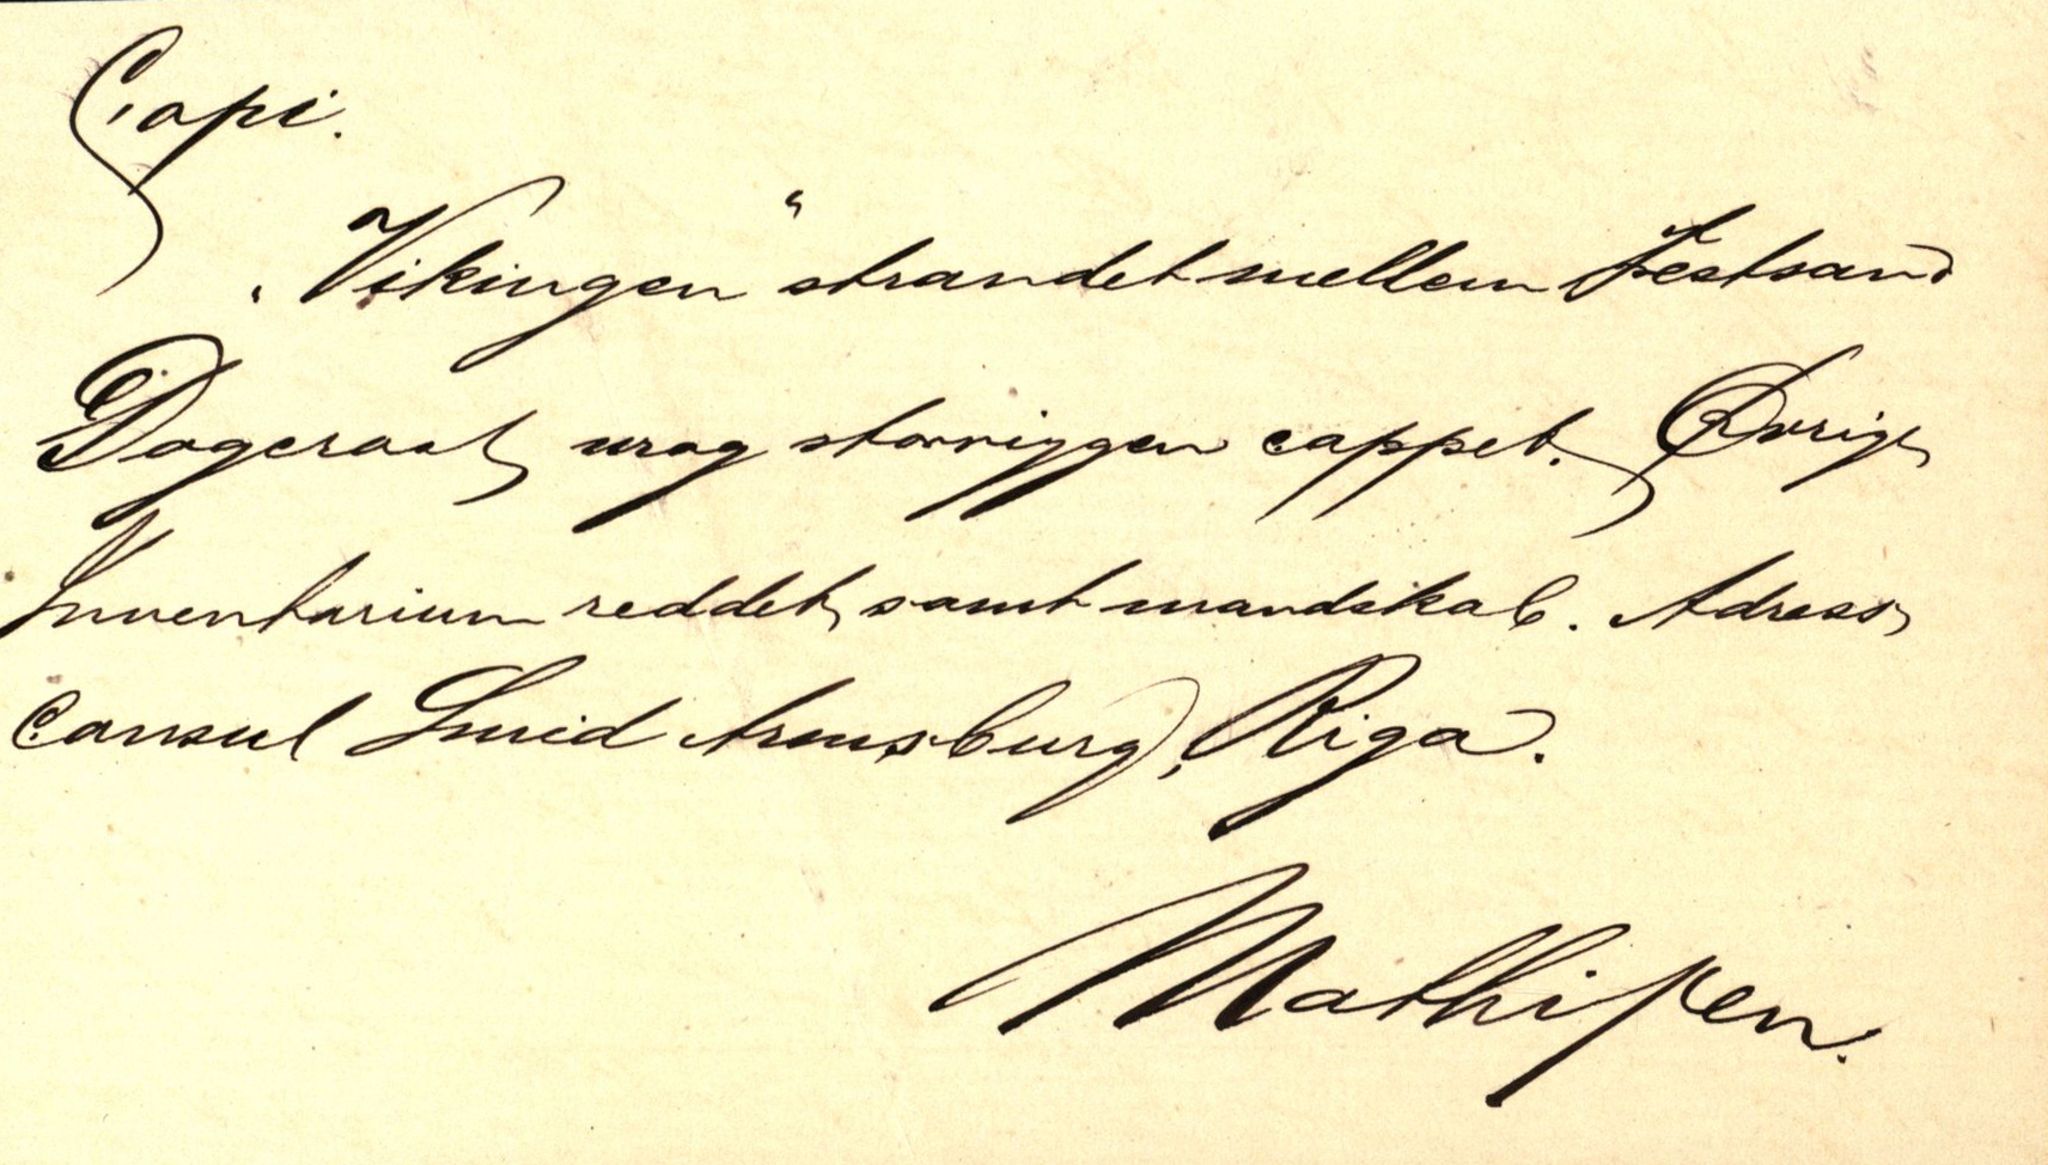 Copi.
"Vikingen" strandet mellem Festsand
Dageraat, vrag storriggen cappet. Øvrige
Inventarium reddet, samt mandskab. Adresse,
Consul Smid Arensburg, Riga.
Mathisen.